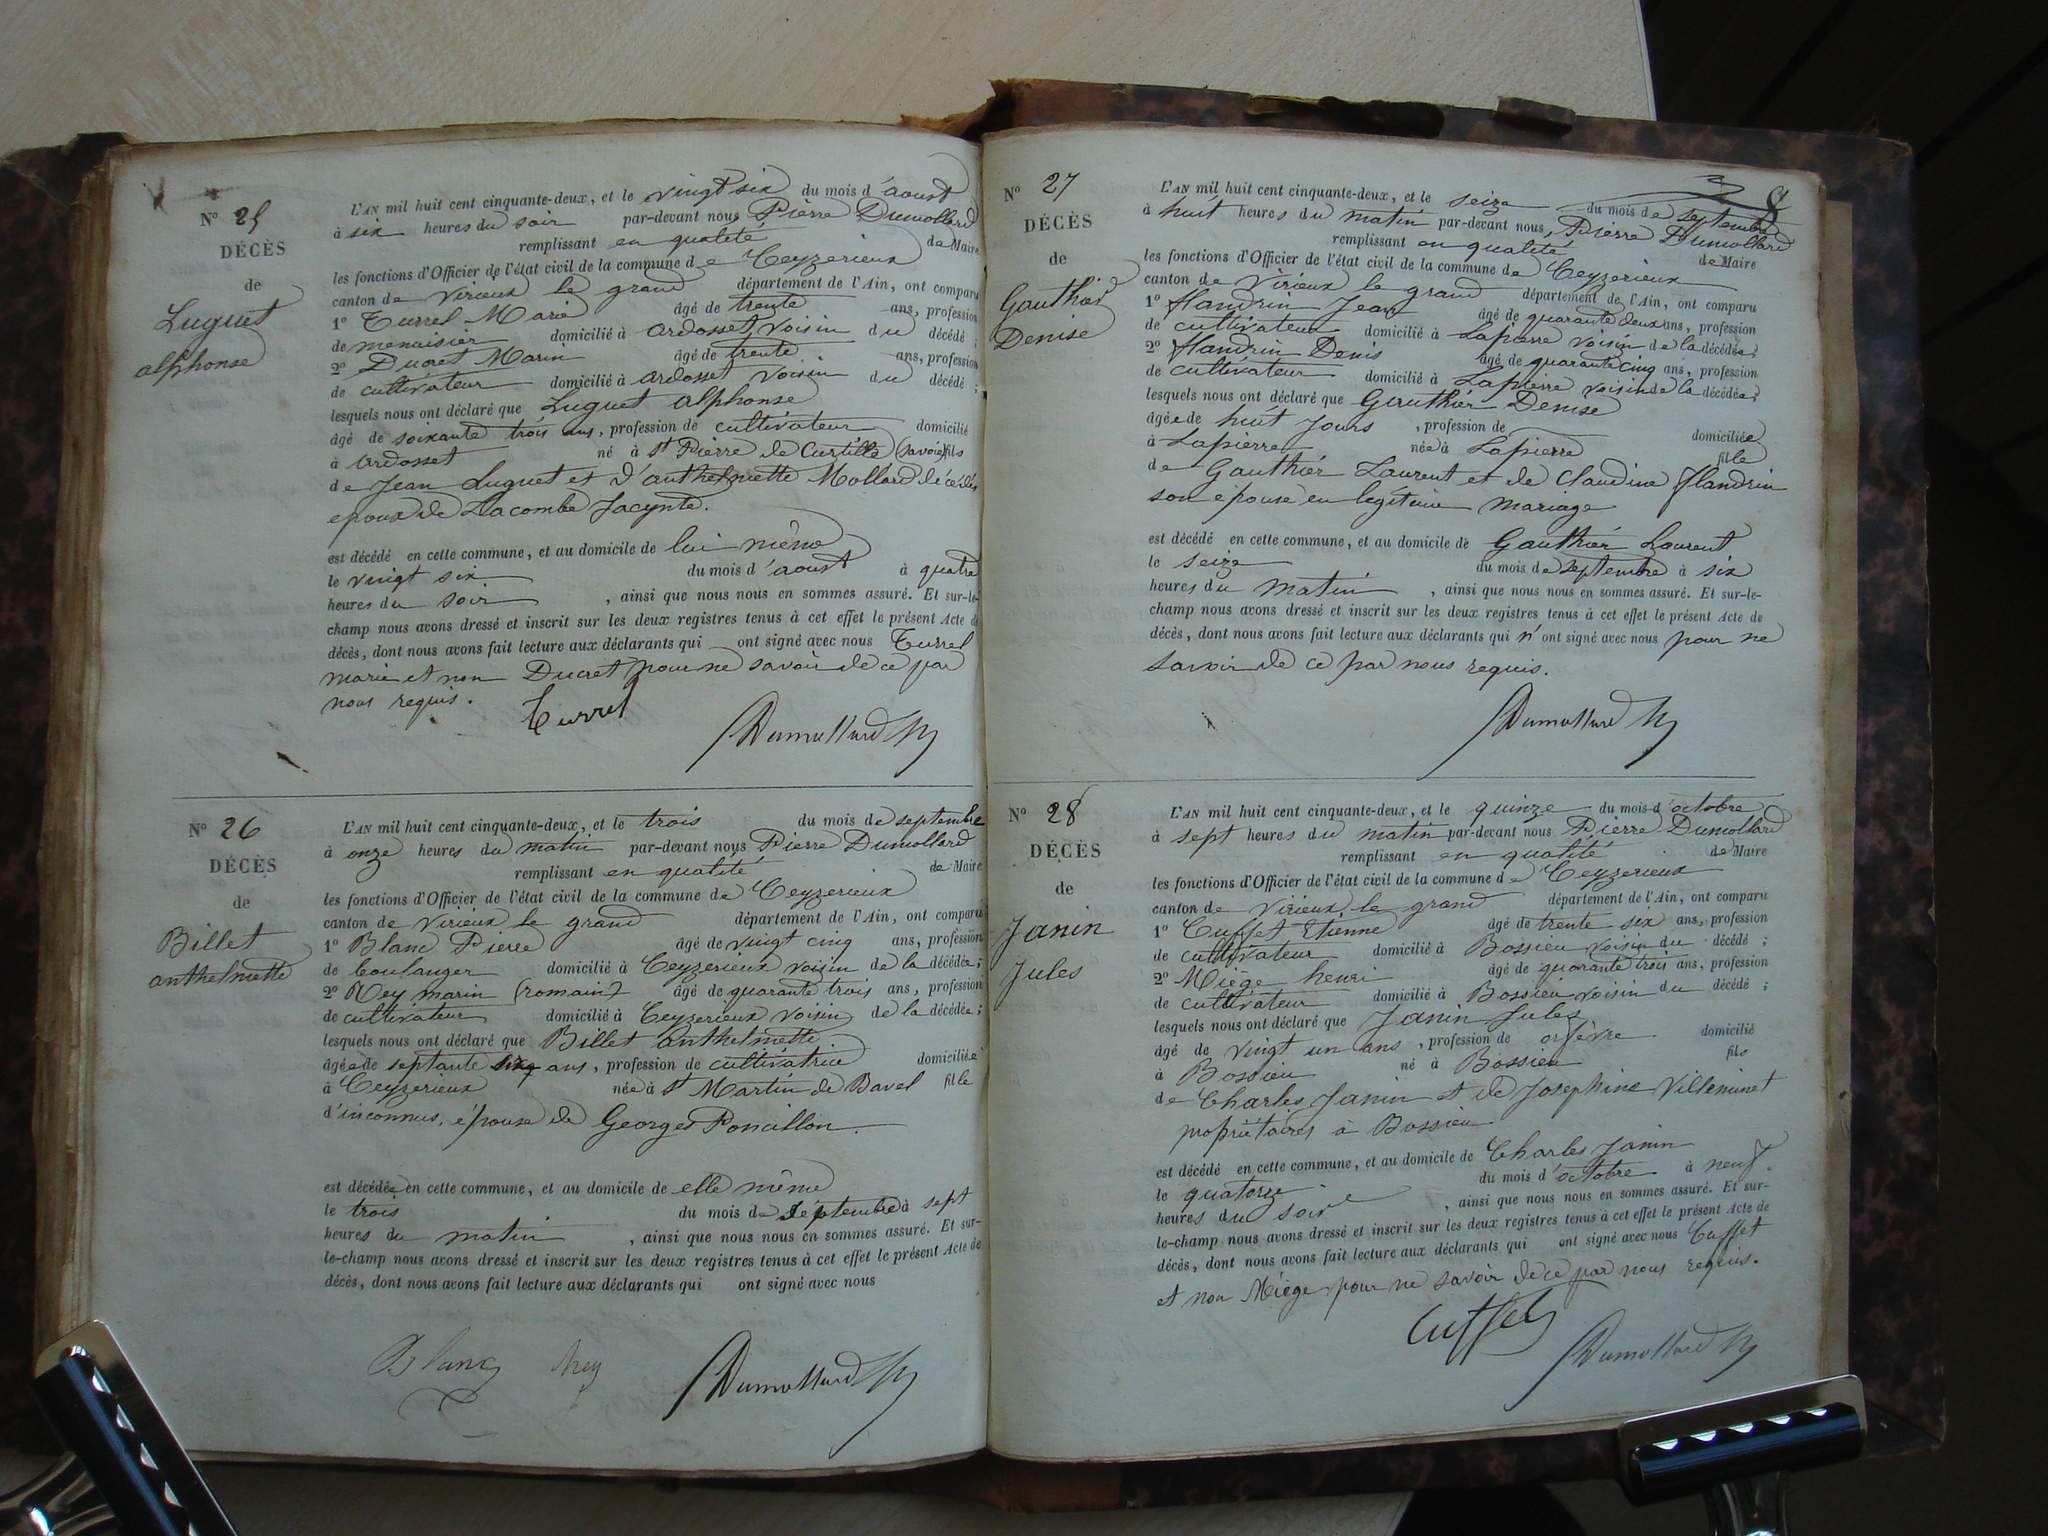 N° 25
DÉCÈS
de
Luguet
alphonse
L'AN mil huit cent cinquante-deux, et le vingt six du mois d'aoust
à six heures du soir par-devant nous Pierre Dumollard
remplissant en qualité de Maire
les fonctions d'Officier de l'état civil de la commune de Ceyzerieux
canton de Virieux le grand département de l'Ain, ont comparu
1° Turrel Marie âgé de trente ans, profession
de menuisier domicilié à ardosset voisin du décédé ;
2° Ducret Marin âgé de trente ans, profession
de cultivateur domicilié à ardosset voisin du décédé ;
lesquels nous ont déclaré que Luguet alphonse
âgé de soixante trois ans, profession de cultivateur domicilié
à ardosset né à St Pierre de Curtille (Savoie) fils
de Jean Luguet et d'anthelmette Mollard décédés
epoux de Lacombe Jacynte.
est décédé en cette commune, et au domicile de lui même
le vingt six du mois d'aoust à quatre
heures du soir, ainsi que nous nous en sommes assuré. Et sur-le-
champ nous avons dressé et inscrit sur les deux registres tenus à cet effet le présent Acte de
décès, dont nous avons fait lecture aux déclarants qui ont signé avec nous Turrel
marie et non Ducret pour ne savoir de ce par
nous requis.
Turrel
Dumollard M
N° 26
DÉCÈS
de
Billet
anthelmette
L'AN mil huit cent cinquante-deux, et le trois du mois de septembre
à onze heures du matin par-devant nous Pierre Dumollard
remplissant en qualité de Maire
les fonctions d'Officier de l'état civil de la commune de Ceyzerieux
canton de Virieux le grand département de l'Ain, ont comparu
1° Blanc Pierre âgé de vingt cinq ans, profession
de boulanger domicilié à Ceyzerieux voisin de la décédée ;
2° Rey marin (romain) âgé de quarante trois ans, profession
de cultivateur domicilié à Ceyzerieux voisin de la décédée ;
lesquels nous ont déclaré que Billet anthelmette
âgée de septante ans, profession de cultivatrice domiciliée
à Ceyzerieux née à St Martin de Bavel fille
d'inconnus, épouse de Georges Poncillon.
est décédée en cette commune, et au domicile de elle même
le trois du mois de septembre à sept
heures du matin, ainsi que nous nous en sommes assuré. Et sur-
le-champ nous avons dressé et inscrit sur les deux registres tenus à cet effet le présent Acte de
décès, dont nous avons fait lecture aux déclarants qui ont signé avec nous
Blanc Rey Dumollard M
N° 27
DÉCÈS
de
Gauthier
Denise
L'AN mil huit cent cinquante-deux, et le seize du mois de septembre
à huit heures du matin par-devant nous, Pierre Dumollard
remplissant en qualité de Maire
les fonctions d'Officier de l'état civil de la commune de Ceyzerieux
canton de Virieux le grand département de l'Ain, ont comparu
1° flandrin Jean âgé de quarante deux ans, profession
de cultivateur domicilié à Lapierre voisin de la décédée ;
2° flandrin Denis âgé de quarante cinq ans, profession
de cultivateur domicilié à Lapierre voisin de la décédée ;
lesquels nous ont déclaré que Gauthier Denise
âgée de huit jours, profession de domiciliée
à Lapierre née à Lapierre fille
de Gauthier Laurent et de Claudine flandrin
son épouse en legitime mariage
est décédé en cette commune, et au domicile de Gauthier Laurent
le seize du mois de septembre à six
heures du matin, ainsi que nous nous en sommes assuré. Et sur-le-
champ nous avons dressé et inscrit sur les deux registres tenus à cet effet le présent Acte de
décès, dont nous avons fait lecture aux déclarants qui n'ont signé avec nous pour ne
savoir de ce par nous requis.
Dumollard M
N° 28
DÉCÈS
de
Janin
Jules
L'AN mil huit cent cinquante-deux, et le quinze du mois d'octobre
à sept heures du matin par-devant nous Pierre Dumollard
remplissant en qualité de Maire
les fonctions d'Officier de l'état civil de la commune de Ceyzerieux
canton de Virieux le grand département de l'Ain, ont comparu
1° Cuffet Etienne âgé de trente six ans, profession
de cultivateur domicilié à Bossieu voisin du décédé ;
2° Miège henri âgé de quarante trois ans, profession
de cultivateur domicilié à Bossieu voisin du décédé ;
lesquels nous ont déclaré que Janin Jules
âgé de vingt un ans, profession de orfèvre domicilié
à Bossieu né à Bossieu fils
de Charles Janin et de Josephine Villeminet
propriétaires à Bossieu
est décédé en cette commune, et au domicile de Charles Janin
le quatorze du mois d'octobre à neuf
heures du soir, ainsi que nous nous en sommes assuré. Et sur-
le-champ nous avons dressé et inscrit sur les deux registres tenus à cet effet le présent Acte de
décès, dont nous avons fait lecture aux déclarants qui ont signé avec nous Cuffet
et non Miège pour ne savoir de ce par nous requis.
Cuffet
Dumollard M